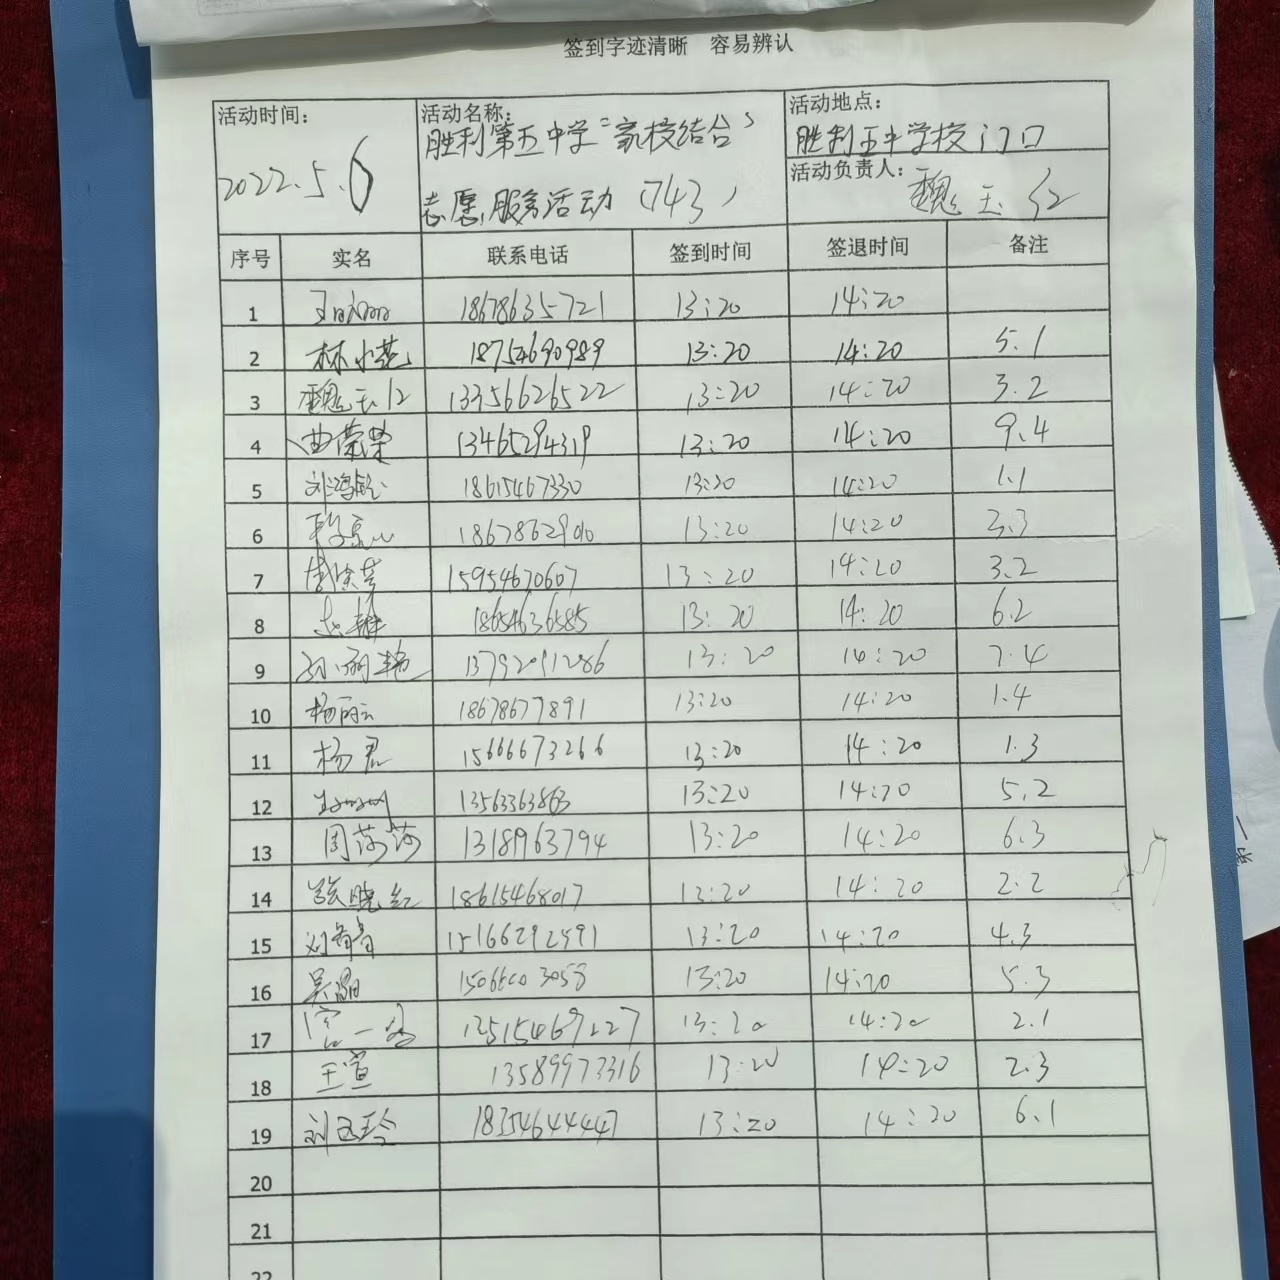 签到字迹清晰 容易辨认
活动时间: 2022.5.6
活动名称: 胜利第五中学"家校结合"
志愿服务活动(743)
活动地点:
胜利五中学校门口
活动负责人: 魏玉红
序号 实名 联系电话 签到时间 签退时间 备注
1 18678635721 13:20 14:20
2 林小艳 18754690989 13:20 14:20 5.1
3 魏玉红 13356626522 13:20 14:20 3.2
4 曲荣荣 13465294319 13:20 14:20 9.4
5 刘鸿 18615467330 13:20 14:20 1.1
6 13:20 14:20 3.3
7 15954670607 13:20 14:20 3.2
8 18654636585 13:20 14:20 6.2
9 孙丽艳 13792091286 13:20 14:20 7.4
10 杨丽云 18678677891 13:20 14:20 1.4
11 杨君 15666673266 13:20 14:20 1.3
12 13563363863 13:20 14:20 5.2
13 周莎莎 13189963794 13:20 14:20 6.3
14 张晓红 18615468017 13:20 14:20 2.2
15 刘青青 15166292591 13:20 14:20 4.3
16 吴 13:20 14:20 5.3
17 13515469227 13:20 14:20 2.1
18 王宣 13589973316 13:20 14:20 2.3
19 刘玉玲 18354644447 13:20 14:20 6.1
20
21
22